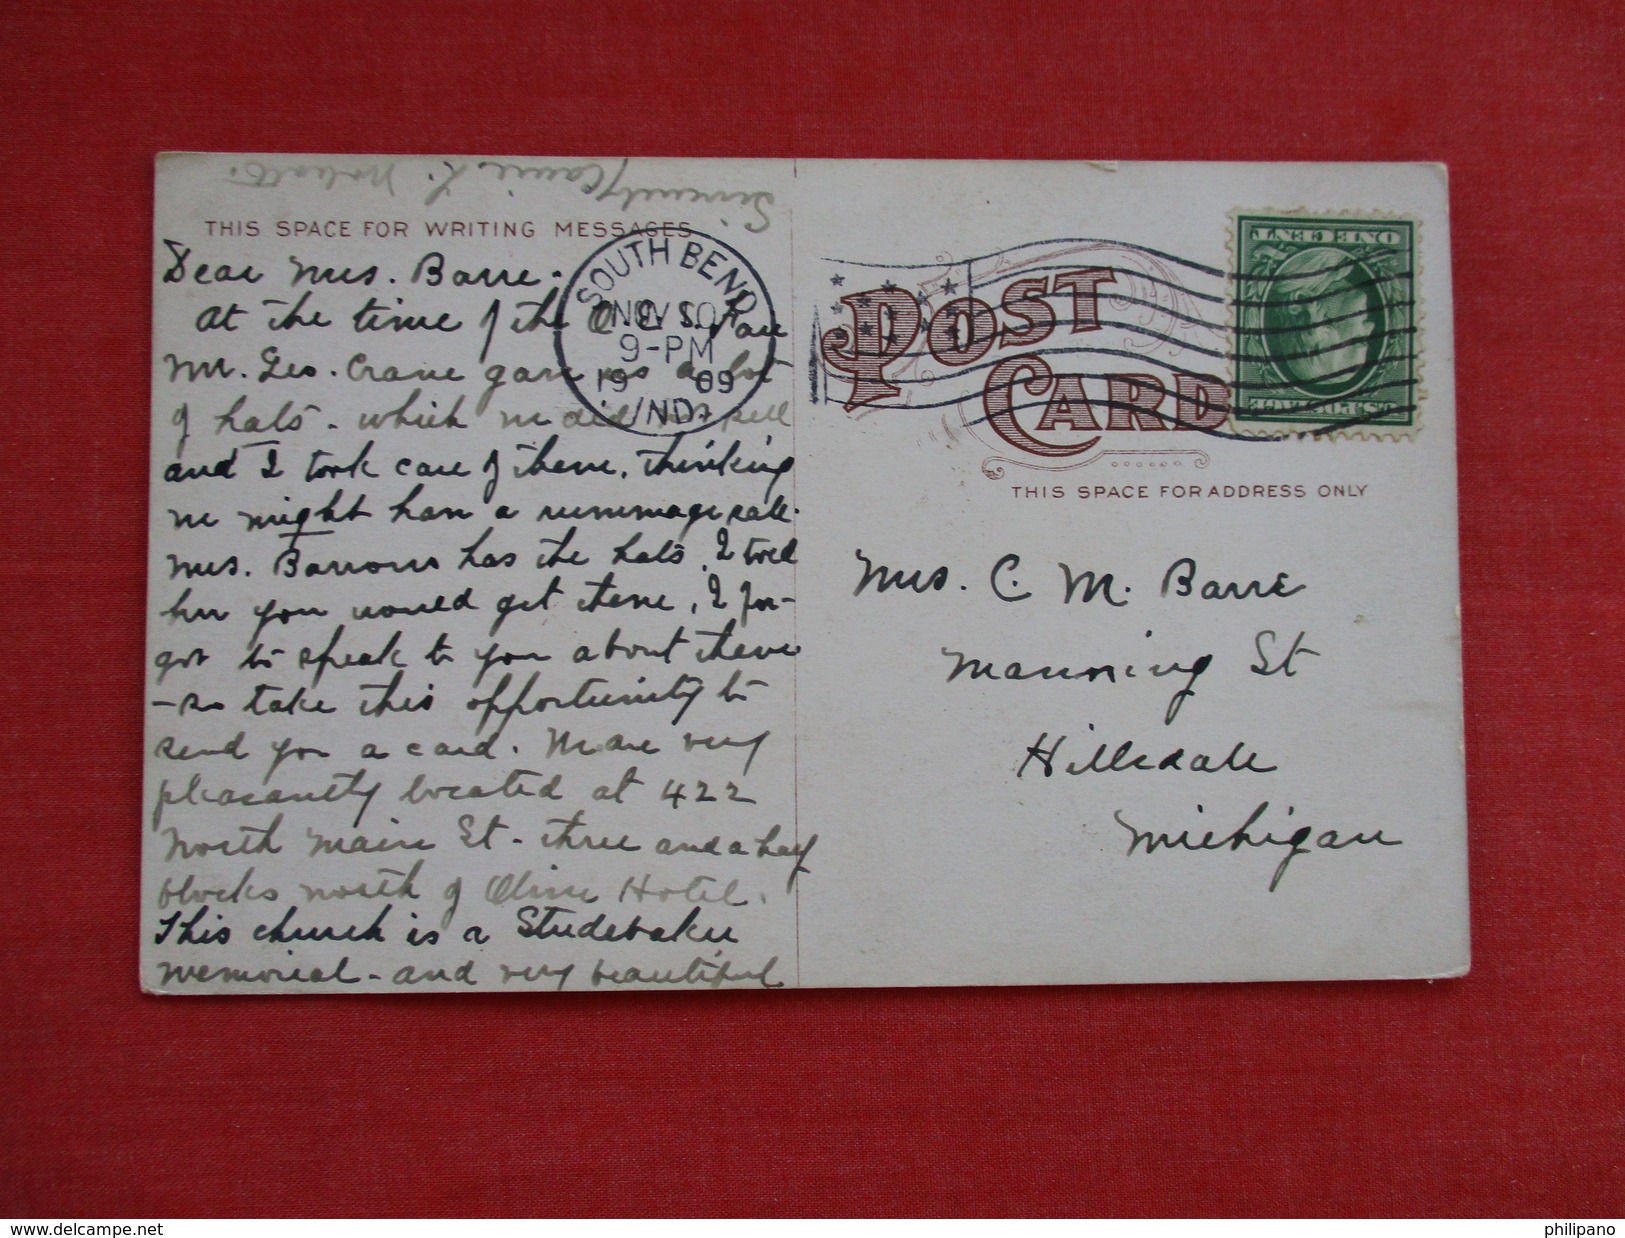 Sincerely Carrie L.
THIS SPACE FOR WRITING MESSAGES
Dear Mrs. Barre.
At the time of the O. E. S. Fair
Mr. Geo. Crane gave us a lot
of hats - which we did not sell
and I took care of them, thinking
we might have a rummage sale.
Mrs. Barrows has the hats. I told
her you would get them, I for-
got to speak to you about them
- so take this opportunity to
send you a card. We are very
pleasantly located at 422
North Main St - three and a half
blocks north of Oliver Hotel.
This church is a Studebaker
memorial - and very beautiful
SOUTH BEND
NOV 10
9-PM
19 09
IND.
POST
CARD
ONE CENT
U.S. POSTAGE
THIS SPACE FOR ADDRESS ONLY
Mrs. C. M. Barre
Manning St
Hillsdale
Michigan
www.delcampe.net
philipano